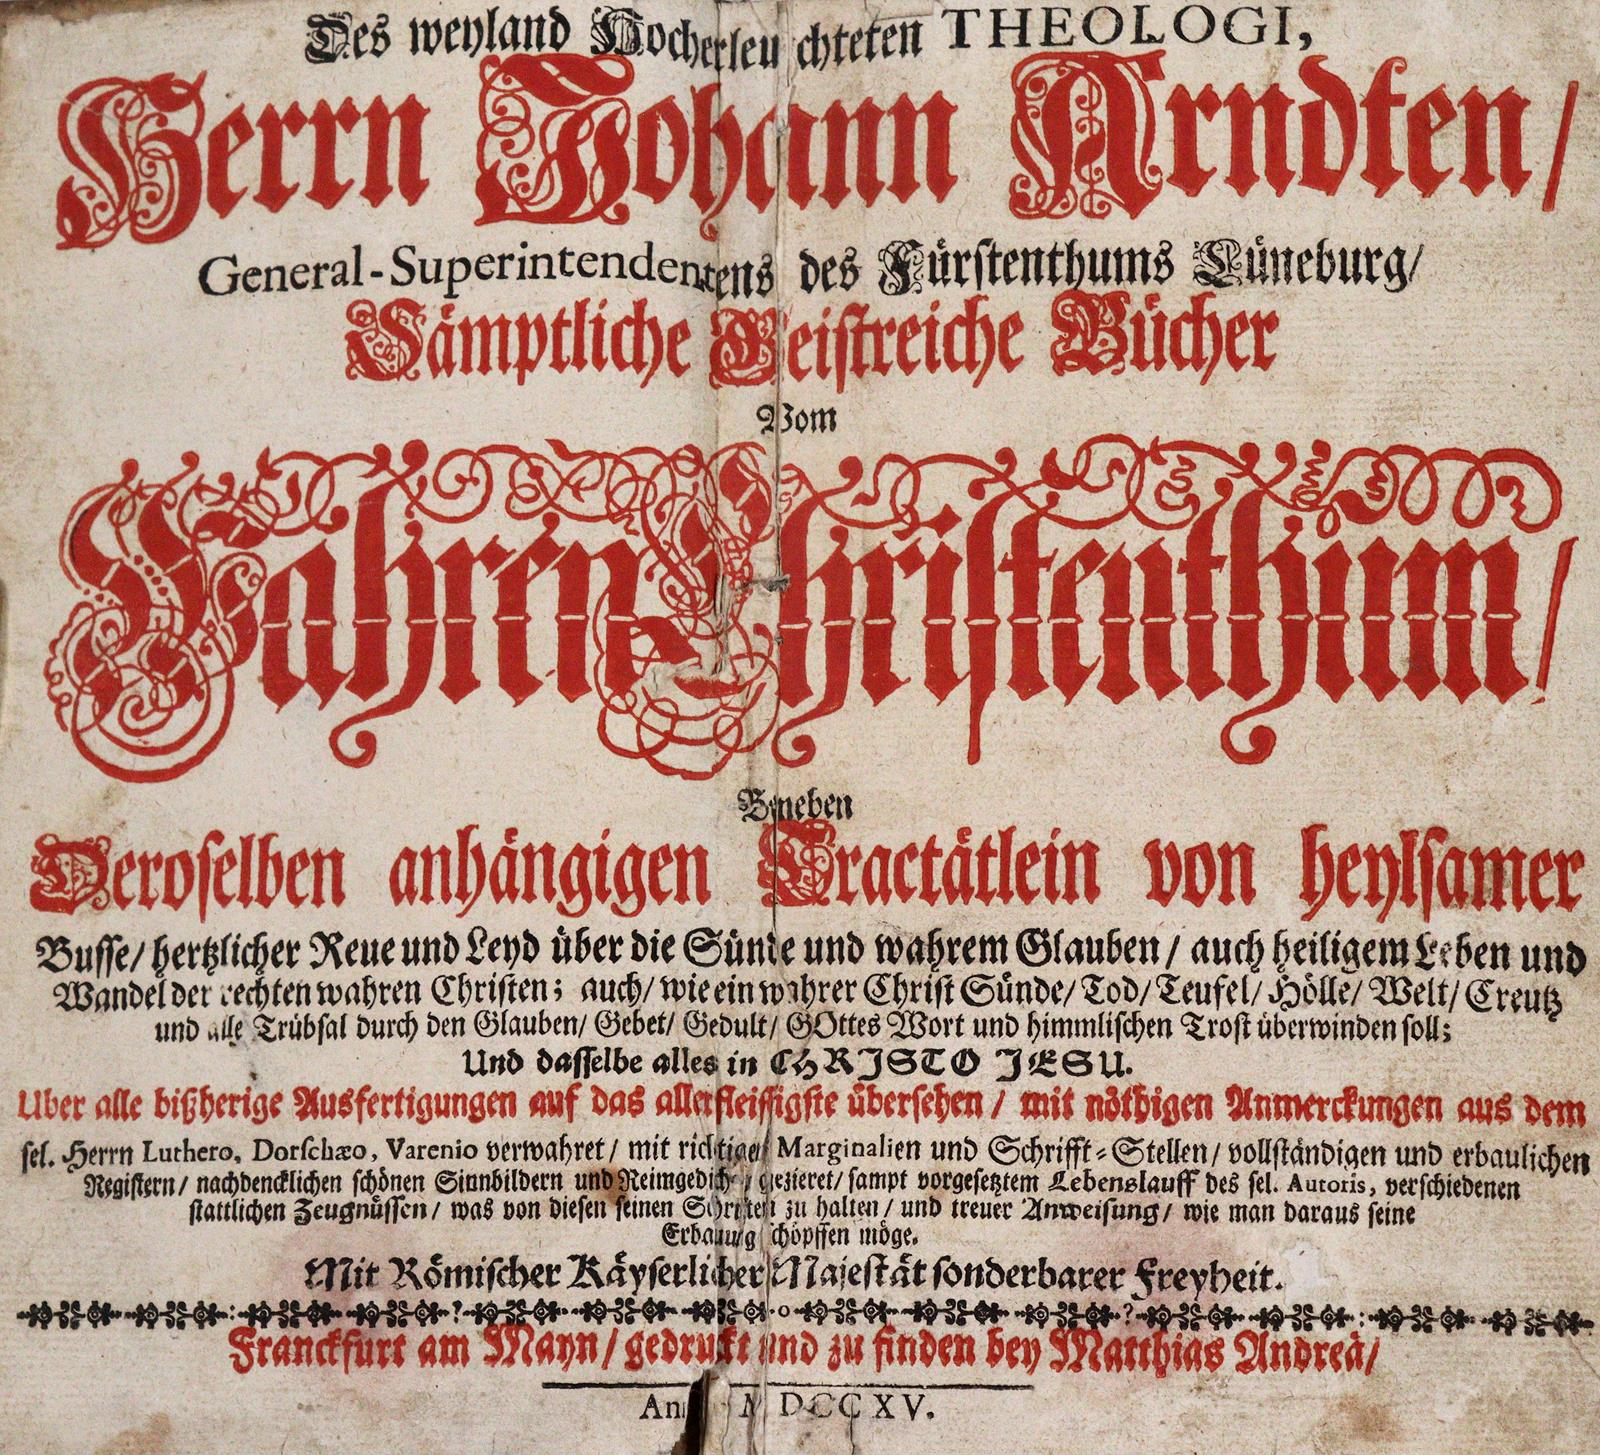 Des weyland Hocherleuchteten THEOLOGI,
Herrn Johann Arndten/
General-Superintendentens des Fürstenthums Lüneburg/
Sämptliche Geistreiche Bücher
Vom
Wahren Christenthum/
Beneben
Deroselben anhängigen Tractätlein von heylsamer
Busse/ hertzlicher Reue und Leyd über die Sünde und wahrem Glauben/ auch heiligem Leben und
Wandel der rechten wahren Christen; auch/ wie ein wahrer Christ Sünde/ Tod/ Teufel/ Hölle/ Welt/ Creutz
und alle Trübsal durch den Glauben/ Gebet/ Gedult/ GOttes Wort und himmlischen Trost überwinden soll;
Und dasselbe alles in CHRISTO JESU.
Uber alle bißherige Ausfertigungen auf das allerfleissigste übersehen/ mit nöthigen Anmerckungen aus dem
sel. Herrn Luthero, Dorschæo, Varenio verwahret/ mit richtigen Marginalien und Schrifft-Stellen/ vollständigen und erbaulichen
Registern/ nachdencklichen schönen Sinnbildern und Reimgedichten gezieret/ sampt vorgesetztem Lebenslauff des sel. Autoris, verschiedenen
stattlichen Zeugnüssen/ was von diesen seinen Schriften zu halten/ und treuer Anweisung/ wie man daraus seine
Erbauung schöpffen möge.
Mit Römischer Käyserlicher Majestät sonderbarer Freyheit.
Franckfurt am Mayn/ gedruckt und zu finden bey Matthias Andreä/
Anno MDCCXV.